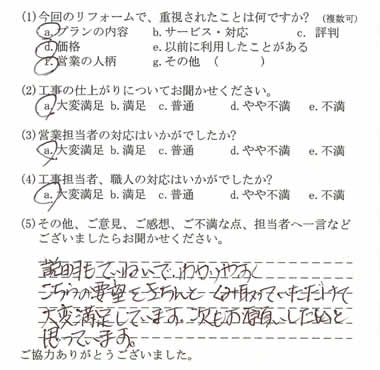 (1)今回のリフォームで、重視されたことは何ですか? (複数可)
a.プランの内容 b.サービス・対応 c. 評判
d.価格 e.以前に利用したことがある
f.営業の人柄 g.その他 ( )
(2)工事の仕上がりについてお聞かせください。
a.大変満足 b.満足 c.普通 d.やや不満 e.不満
(3)営業担当者の対応はいかがでしたか?
a.大変満足 b.満足 c.普通 d.やや不満 e.不満
(4)工事担当者、職人の対応はいかがでしたか?
a.大変満足 b.満足 c.普通 d.やや不満 e.不満
(5)その他、ご意見、ご感想、ご不満な点、担当者へ一言など
ございましたらお聞かせください。
説明もていねいで、わかりやすく
こちらの要望をきちんと汲み取っていただけて
大変満足しています。次もお願いしたいと
思っています。
ご協力ありがとうございました。